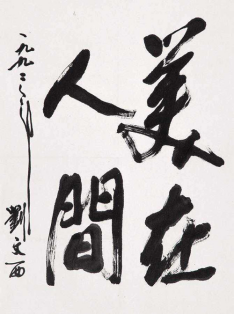 美在
人間
一九九二年
劉文西